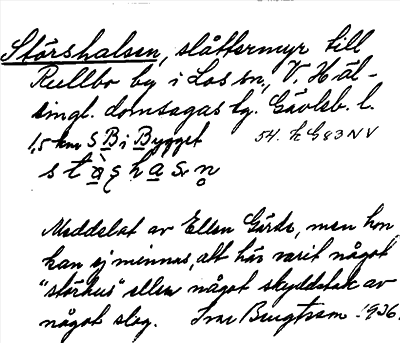 Störshalsen, slåttermyr till
Rullbo by i Los sn, V. Häl-
singl. domsagas tg. Gävleb. l.
1,5 km S B i Bygget 54. h G 83 NV
Meddelat av Ellen Gärde, men hon
kan ej minnas, att här varit något
"störhus" eller något skyddstak av
något slag. Ivar Bengtsson 1936.